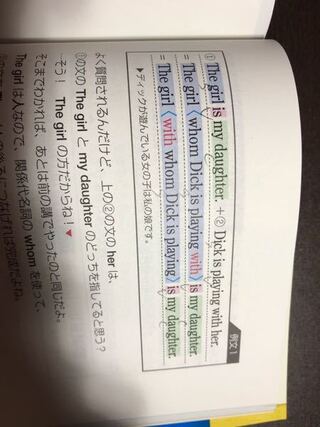 例文1
① The girl is my daughter. + ② Dick is playing with her.
= The girl〈whom Dick is playing with〉is my daughter.
= The girl〈with whom Dick is playing〉is my daughter.
▶ディックが遊んでいる女の子は私の娘です。
よく質問されるんだけど、上の②の文の her は、
①の文の The girl と my daughter のどっちを指してると思う？
…そう！ The girl の方だからね！♥
そこまでわかれば、あとは前の講でやったのと同じだよ。
The girl は人なので、関係代名詞の whom を使って、